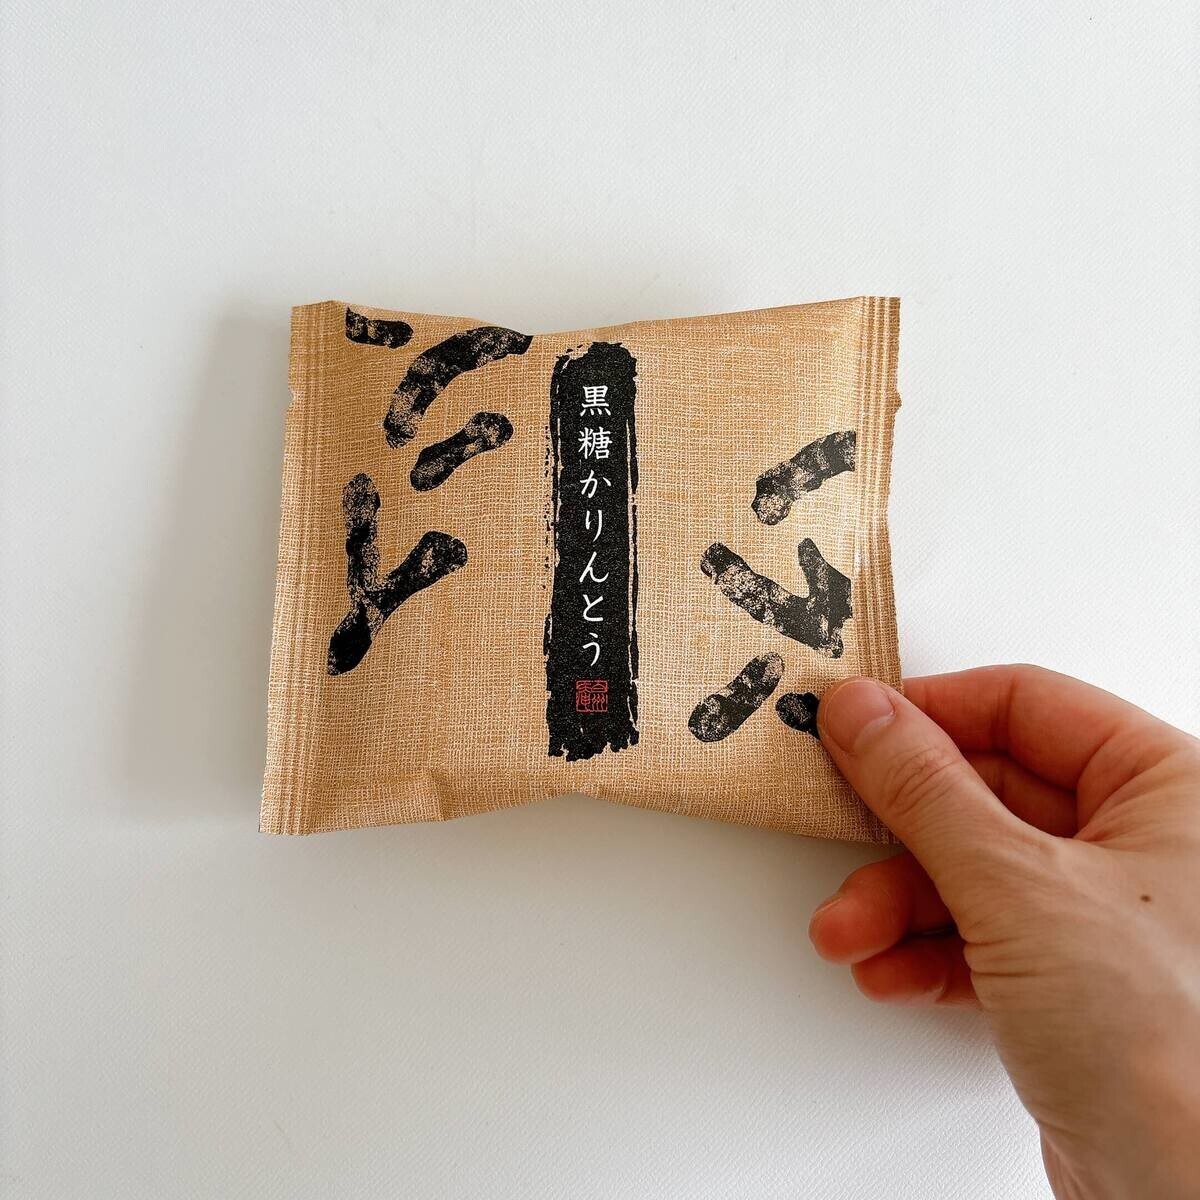 黒糖かりんとう